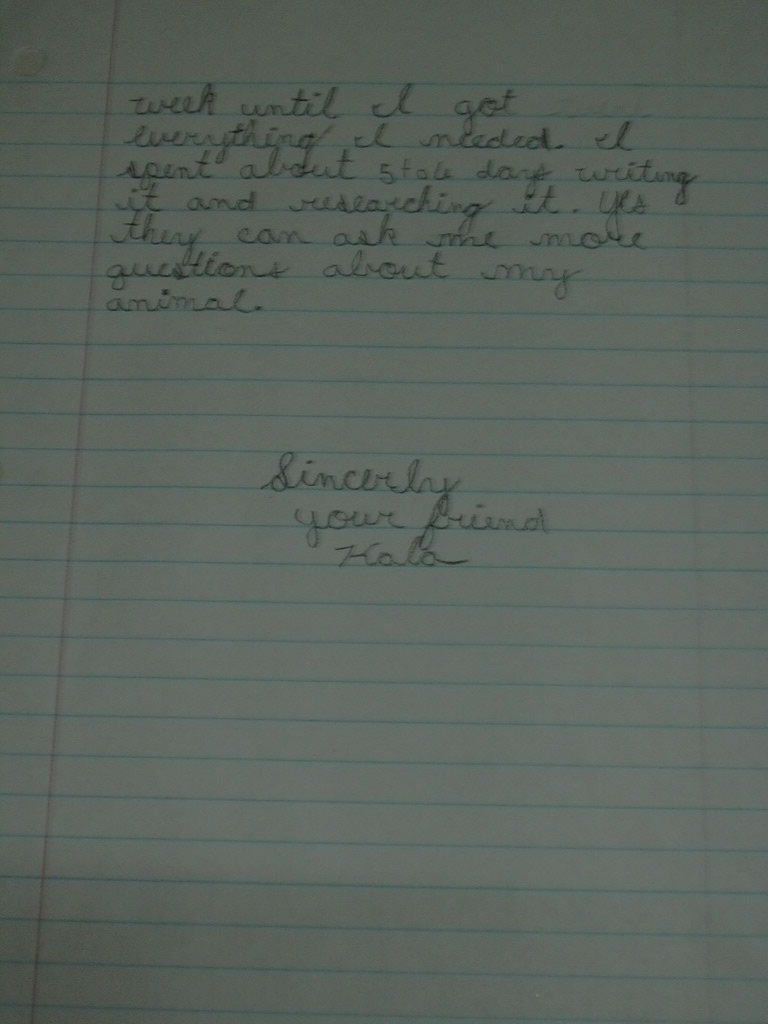 week until I got
everything I needed. I
spent about 5 to 6 days writing
it and researching it. Yes
they can ask me more
questions about my
animal.
Sincerly
your friend
Kala